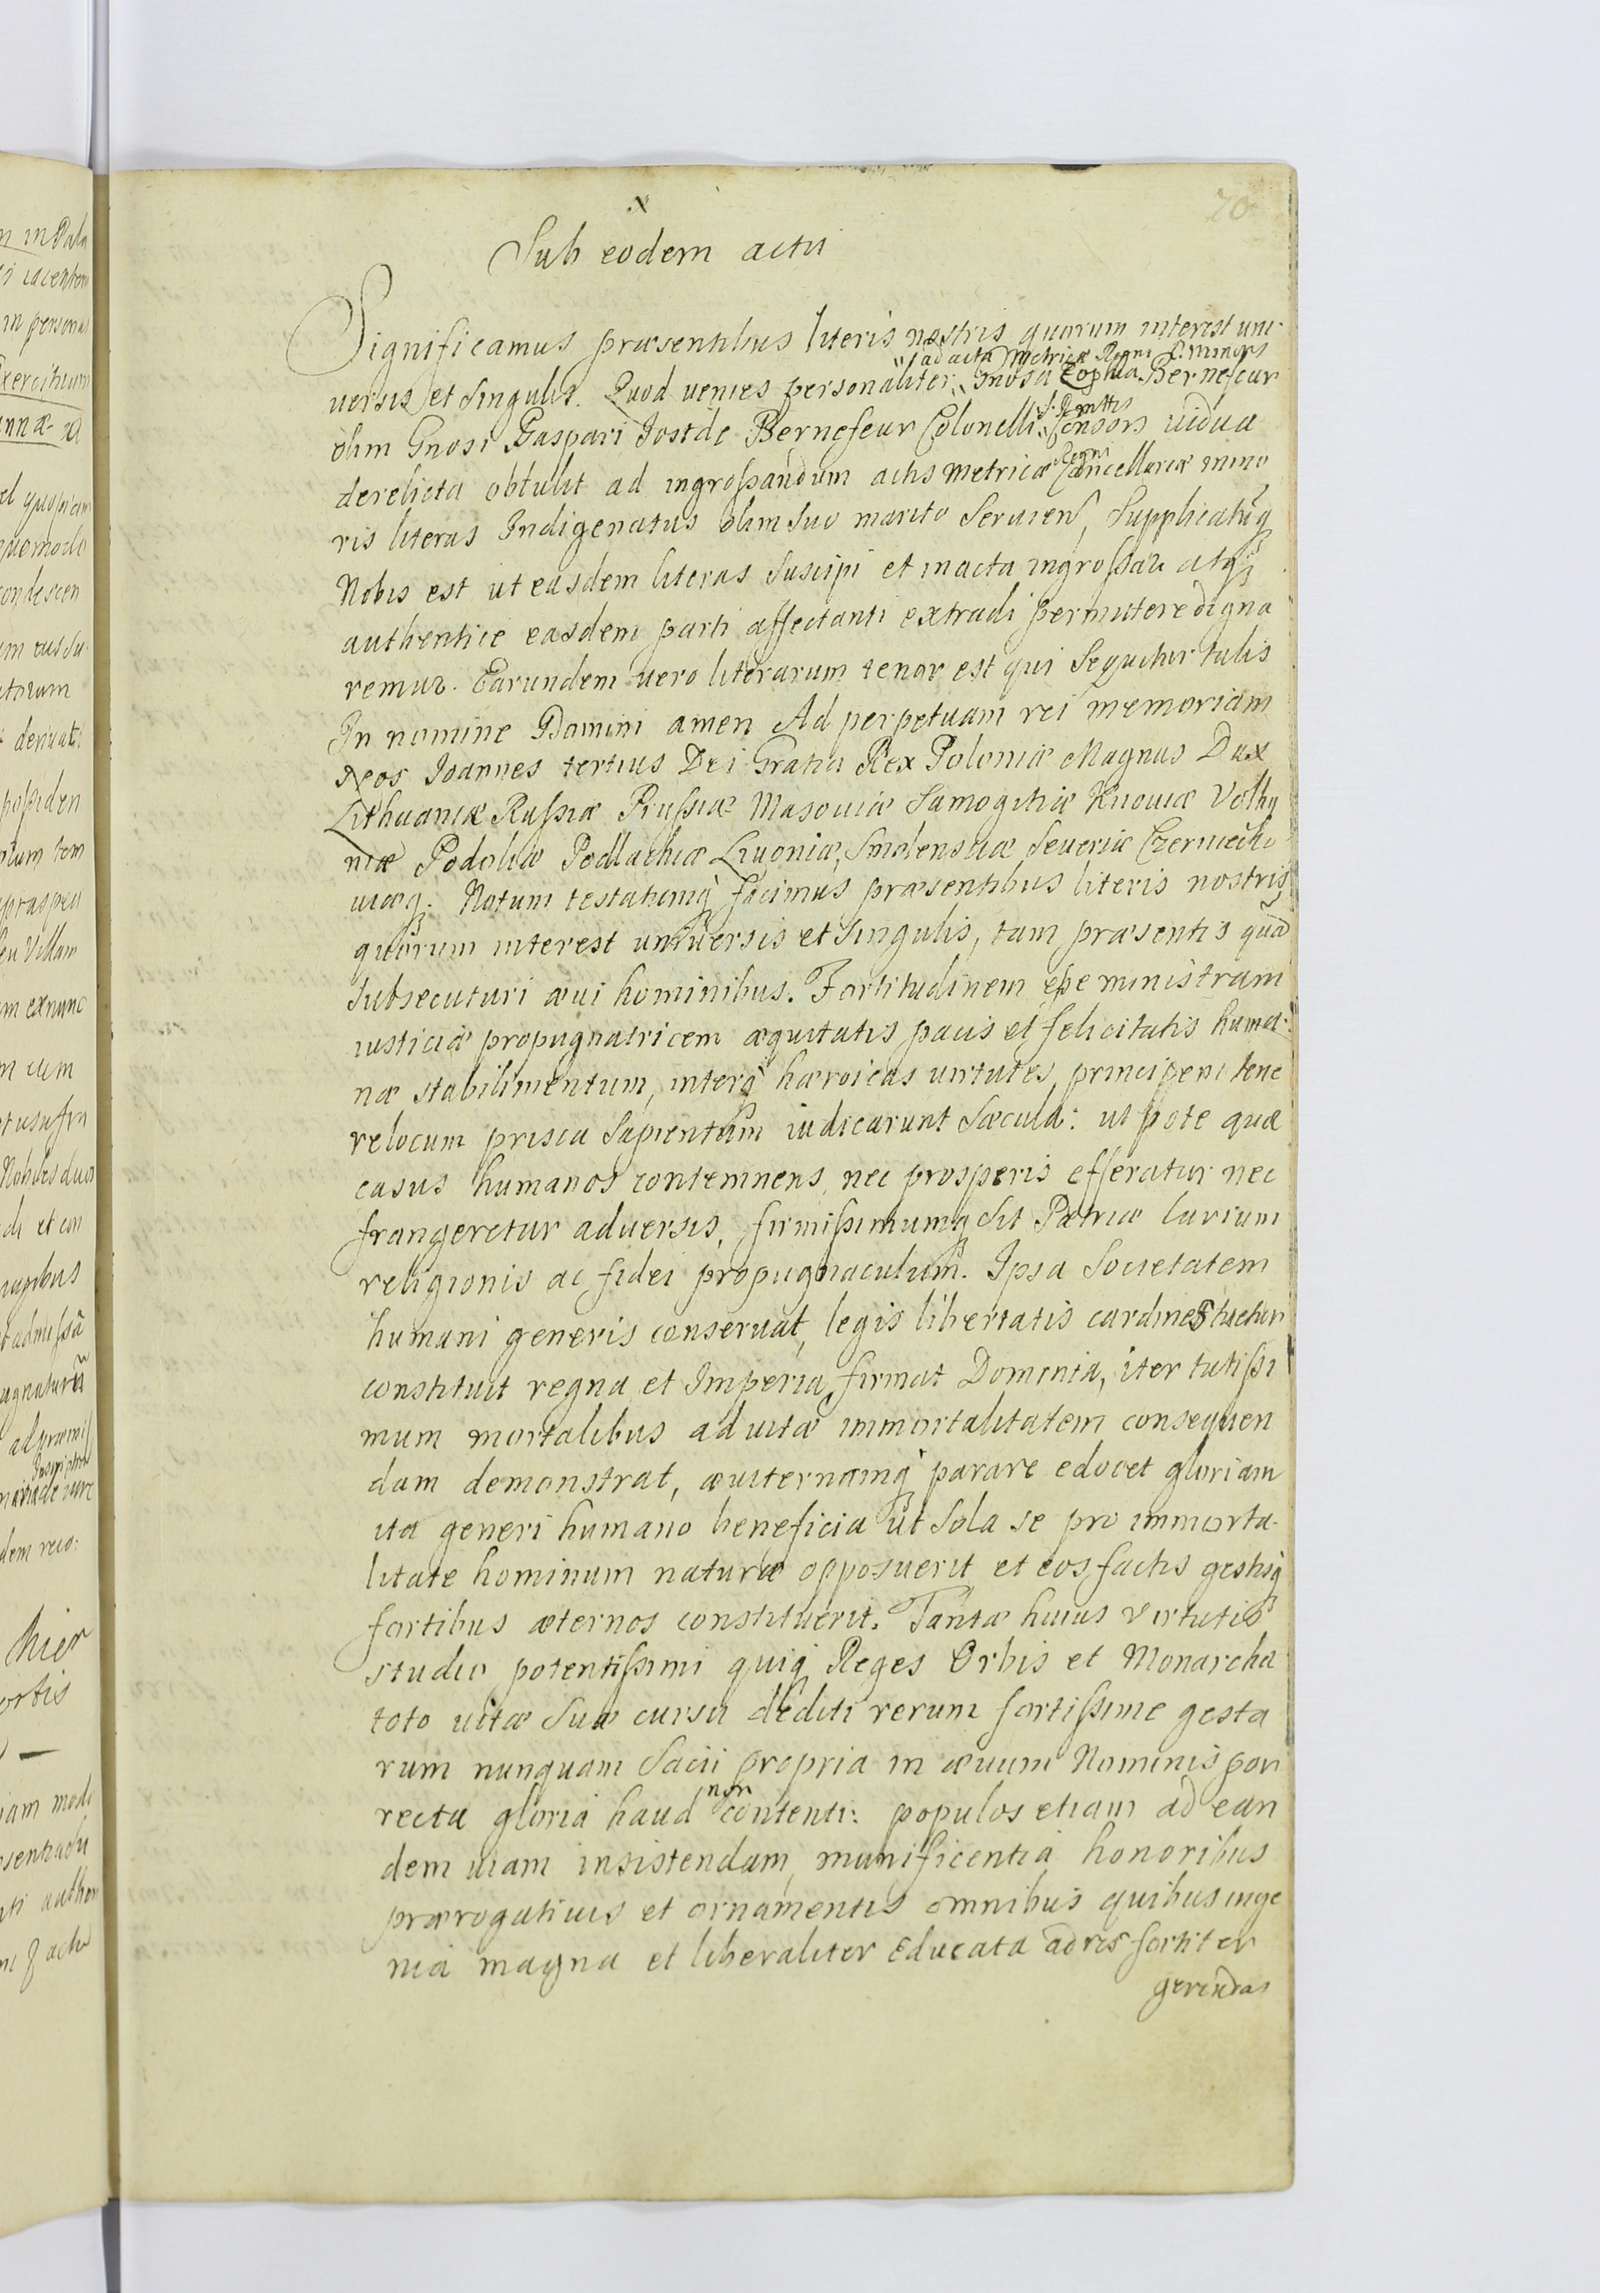 20
Sub eodem actu
Significamus præsentibus literis nostris quorum interest uni-
ad acta Metricæ Regni C. Minoris
versis et singulis. Quod veniens personaliter Gnosa Zophia Bernefeur
S. R. Mttis
olim Gnosi Gaspari Jost de Bernefeur Colonelli Consors vidua
Regni
derelicta obtulit ad ingrossandum actis Metricæ Cancellariæ mino
ris literas Indigenatus olim suo marito Serviens, Supplicatuq
Nobis est ut easdem literas suscipi et in acta ingrossari atq
authentice easdem parti affectanti extradi permittere digna
remur. Earundem vero literarum tenor est qui sequitur talis
In nomine Domini amen Ad perpetuam rei memoriam
Nos Joannes tertius Dei Gratia Rex Poloniæ Magnus Dux
Lithuaniæ Russiæ Prussiæ Masoviæ Samogitiæ Kijoviæ Volhy
niæ Podoliæ Podlachiæ Livoniæ, Smolensciæ Severiæ Czerniecho
viæq. Notum testatumq facimus præsentibus literis nostris
quorum interest universis et singulis, tam præsentis quā
subsecuturi ævi hominibus. Fortitudinem esse ministram
iusticiæ propugnatricem æquitatis pacis et felicitatis huma-
næ stabilimentum, interq hæroicas virtutes principem tene
re locum prisca Sapientum iudicarunt Sæcula: ut pote quæ
casus humanos contemnens, nec prosperis efferatur nec
frangeretur adversis, firmissimumq sit Patriæ larium
religionis ac fidei propugnaculum. Ipsa Societatem
humani generis conservat, legis libertatis cardines tuetur
constituit regna et Imperia, firmat Domenia, iter tutissi
mum mortalibus ad vitæ immortalitatem consequen
dam demonstrat, æviternamq parare edocet gloriam
ita generi humano beneficia ut sola se pro immorta-
litate hominum naturæ opposuerit et eos factis gestisq
fortibus æternos constituerit. Tantæ huius virtutis
studio potentissimi quiq Reges Orbis et Monarcha
toto vitæ suæ cursu dediti rerum fortissime gesta
rum nunquam Sacii propria in ævum Nominis por
non
recta gloria haud contenti: populos etiam ad ean
dem viam insistendam, munificentia honoribus
prærogativis et ornamentis omnibus quibus inge
nia magna et liberaliter educata ad res fortiter
gerendas